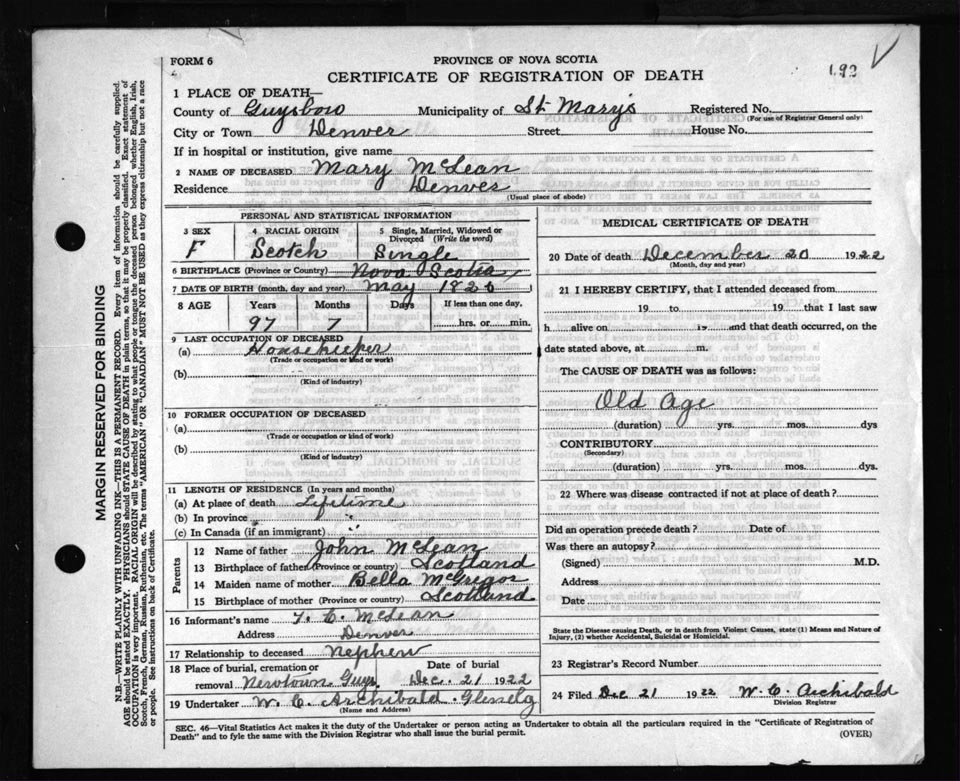 FORM 6
PROVINCE OF NOVA SCOTIA
CERTIFICATE OF REGISTRATION OF DEATH
192
1 PLACE OF DEATH—
County of Guysboro Municipality of St. Mary's Registered No.
(For use of Registrar General only)
City or Town Denver Street House No.
If in hospital or institution, give name
2 NAME OF DECEASED Mary McLean
Residence Denver
(Usual place of abode)
PERSONAL AND STATISTICAL INFORMATION
3 SEX F
4 RACIAL ORIGIN Scotch
5 Single, Married, Widowed or Divorced (Write the word) Single
6 BIRTHPLACE (Province or Country) Nova Scotia
7 DATE OF BIRTH (month, day and year) May 182
8 AGE Years Months Days If less than one day,
97 7 hrs. or min.
9 LAST OCCUPATION OF DECEASED
(a) Housekeeper
(Trade or occupation or kind or work)
(b)
(Kind of industry)
10 FORMER OCCUPATION OF DECEASED
(a)
(Trade or occupation or kind of work)
(b)
(Kind of industry)
11 LENGTH OF RESIDENCE (In years and months)
(a) At place of death Lifetime
(b) In province "
(c) In Canada (if an immigrant) "
Parents
12 Name of father John McLean
13 Birthplace of father (Province or country) Scotland
14 Maiden name of mother Bella McGregor
15 Birthplace of mother (Province or country) Scotland
16 Informant's name McLean
Address Denver
17 Relationship to deceased Nephew
18 Place of burial, cremation or removal Newtown Guys. Date of burial Dec. 21 1922
19 Undertaker W. C. Archibald Glenelg
(Name and Address)
MEDICAL CERTIFICATE OF DEATH
20 Date of death December 20 1922
(Month, day and year)
21 I HEREBY CERTIFY, that I attended deceased from
19 to 19 that I last saw
h alive on 19 and that death occurred, on
date stated above, at m.
The CAUSE OF DEATH was as follows:
Old Age
(duration) yrs. mos. dys
CONTRIBUTORY
(Secondary)
(duration) yrs. mos. dys.
22 Where was disease contracted if not at place of death?
Did an operation precede death? Date of
Was there an autopsy?
(Signed) M.D.
Address
Date
State the Disease causing Death, or in death from Violent Causes, state (1) Means and Nature of
Injury, (2) whether Accidental, Suicidal or Homicidal.
23 Registrar's Record Number
24 Filed Dec 21 1922 W. C. Archibald
Division Registrar
SEC. 46—Vital Statistics Act makes it the duty of the Undertaker or person acting as Undertaker to obtain all the particulars required in the "Certificate of Registration of
Death" and to fyle the same with the Division Registrar who shall issue the burial permit.
(OVER)
MARGIN RESERVED FOR BINDING
N.B.—WRITE PLAINLY WITH UNFADING INK—THIS IS A PERMANENT RECORD. Every item of information should be carefully supplied.
AGE should be stated EXACTLY. PHYSICIANS should STATE CAUSE OF DEATH in plain terms, so that it may be properly classified. Exact statement of
OCCUPATION is very important. RACIAL ORIGIN will be described by stating to what people or tongue the deceased person belonged whether English, Irish,
Scotch, French, German, Russian, Ruthenian, etc. The terms "AMERICAN" OR "CANADIAN" MUST NOT BE USED as they express citizenship but not a race
or people. See instructions on back of Certificate.